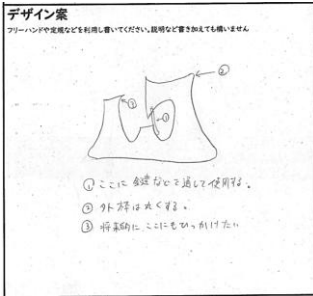 デザイン案
フリーハンドや定規などを利用し書いてください。説明など書き加えても構いません
②
③
①
① ここに 鍵などを通して使用する。
② 外枠は丸くする。
③ 将来的にここにもひっかけたい